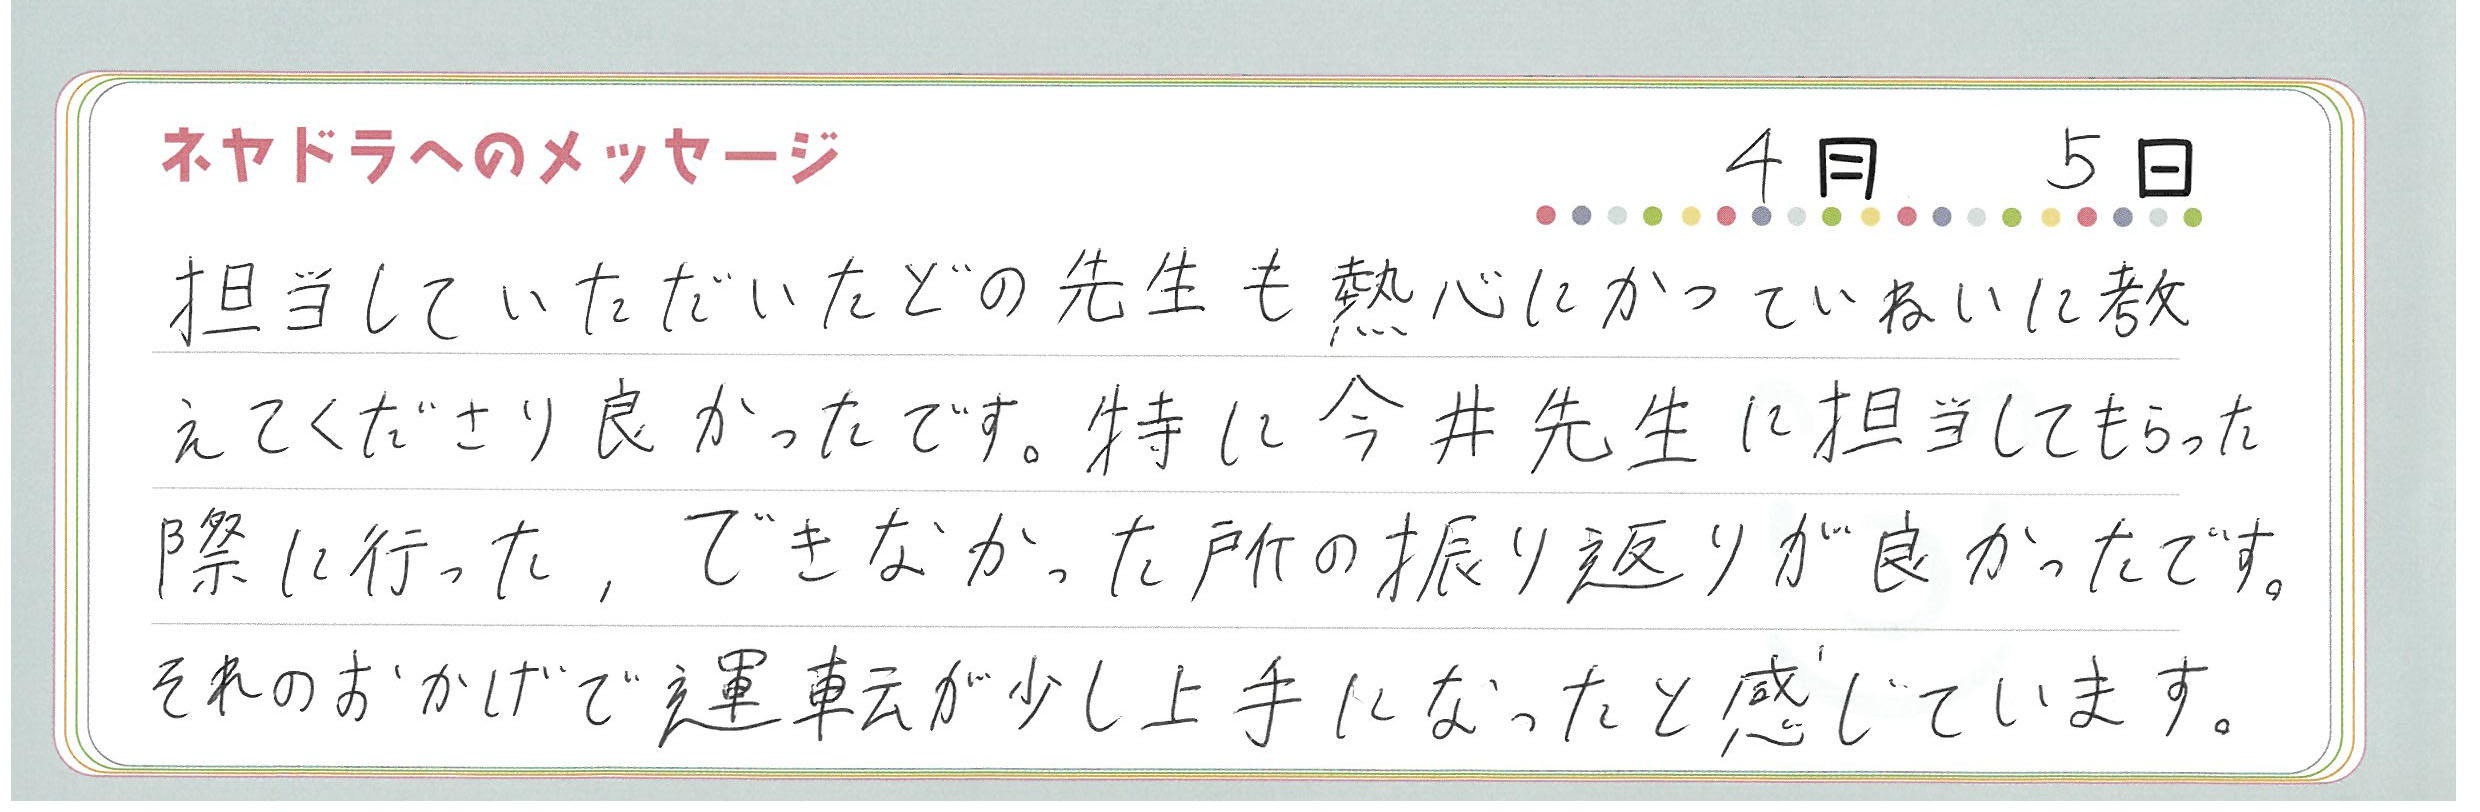 ネヤドラへのメッセージ 4月 5日
担当していただいたどの先生も熱心にかつていねいに教
えてくださり良かったです。特に今井先生に担当してもらった
際に行った, できなかった所の振り返りが良かったです。
それのおかげで運転が少し上手になったと感じています。